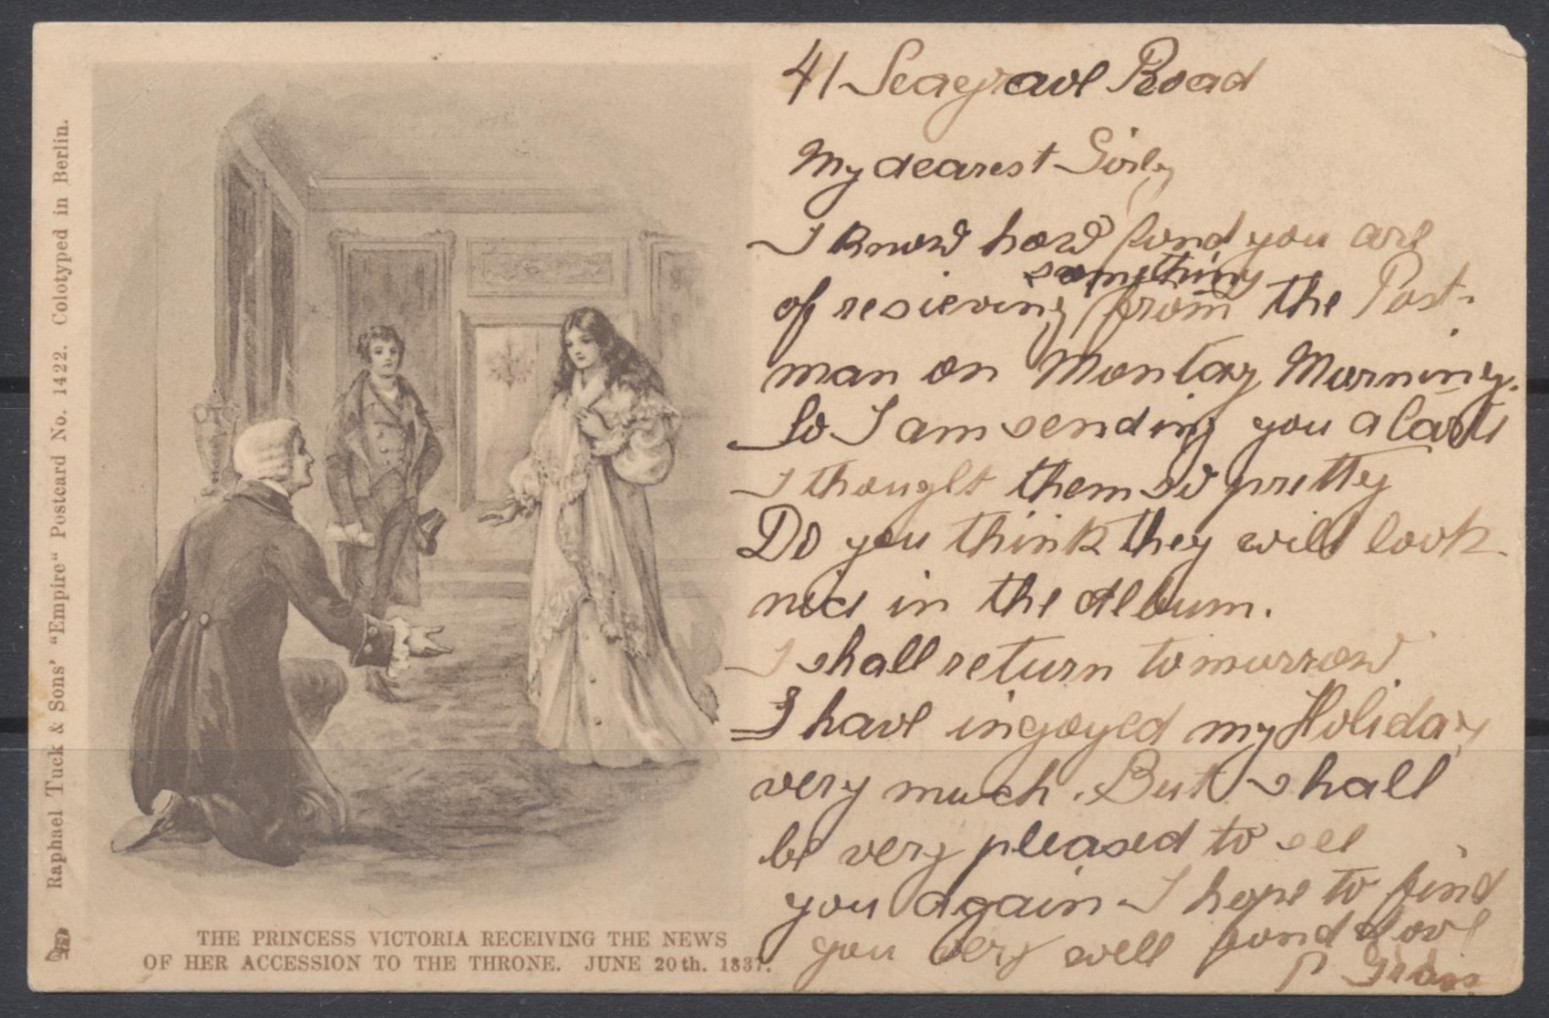 Raphael Tuck & Sons' "Empire" Postcard No. 1422. Colotyped in Berlin.
THE PRINCESS VICTORIA RECEIVING THE NEWS
OF HER ACCESSION TO THE THRONE. JUNE 20th. 1837.
41 Seagrave Road
My dearest Girly
I know how fond you are
something
of resieving from the Post-
man on Monday Morning.
So I am sending you a Cards
I thought them so pretty
Do you think they will look
nice in the Album.
I shall return tomorrow
I have ingoyed my Holiday
very much. But shall
be very pleased to see
you again I hope to find
you very well fond love